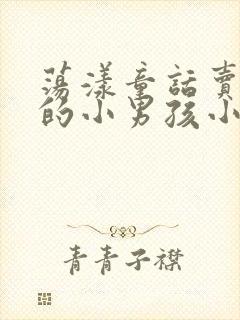 蕩漾童話賣
的小男孩小
青青子襟